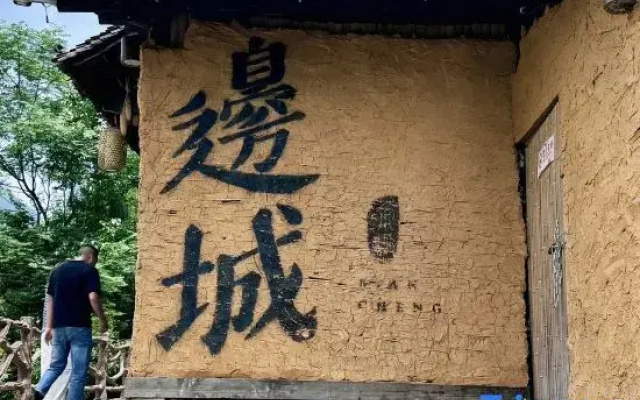 邊城
BIAN
CHENG